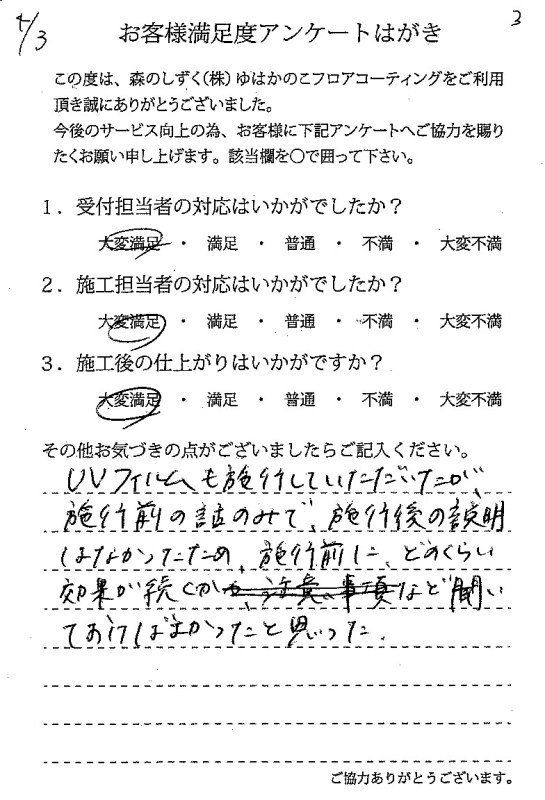 4/3
3
お客様満足度アンケートはがき
この度は、森のしずく(株)ゆはかのこフロアコーティングをご利用
頂き誠にありがとうございました。
今後のサービス向上の為、お客様に下記アンケートへご協力を賜り
たくお願い申し上げます。該当欄を○で囲って下さい。
1．受付担当者の対応はいかがでしたか？
大変満足 ・ 満足 ・ 普通 ・ 不満 ・ 大変不満
2．施工担当者の対応はいかがでしたか？
大変満足 ・ 満足 ・ 普通 ・ 不満 ・ 大変不満
3．施工後の仕上がりはいかがですか？
大変満足 ・ 満足 ・ 普通 ・ 不満 ・ 大変不満
その他お気づきの点がございましたらご記入ください。
UVフィルムも施行していただいたが、
施行前の話のみで、施行後の説明
はなかったため、施行前に、どのくらい
効果が続くかや、注意事項など聞い
ておけばよかったと思った。
ご協力ありがとうございます。